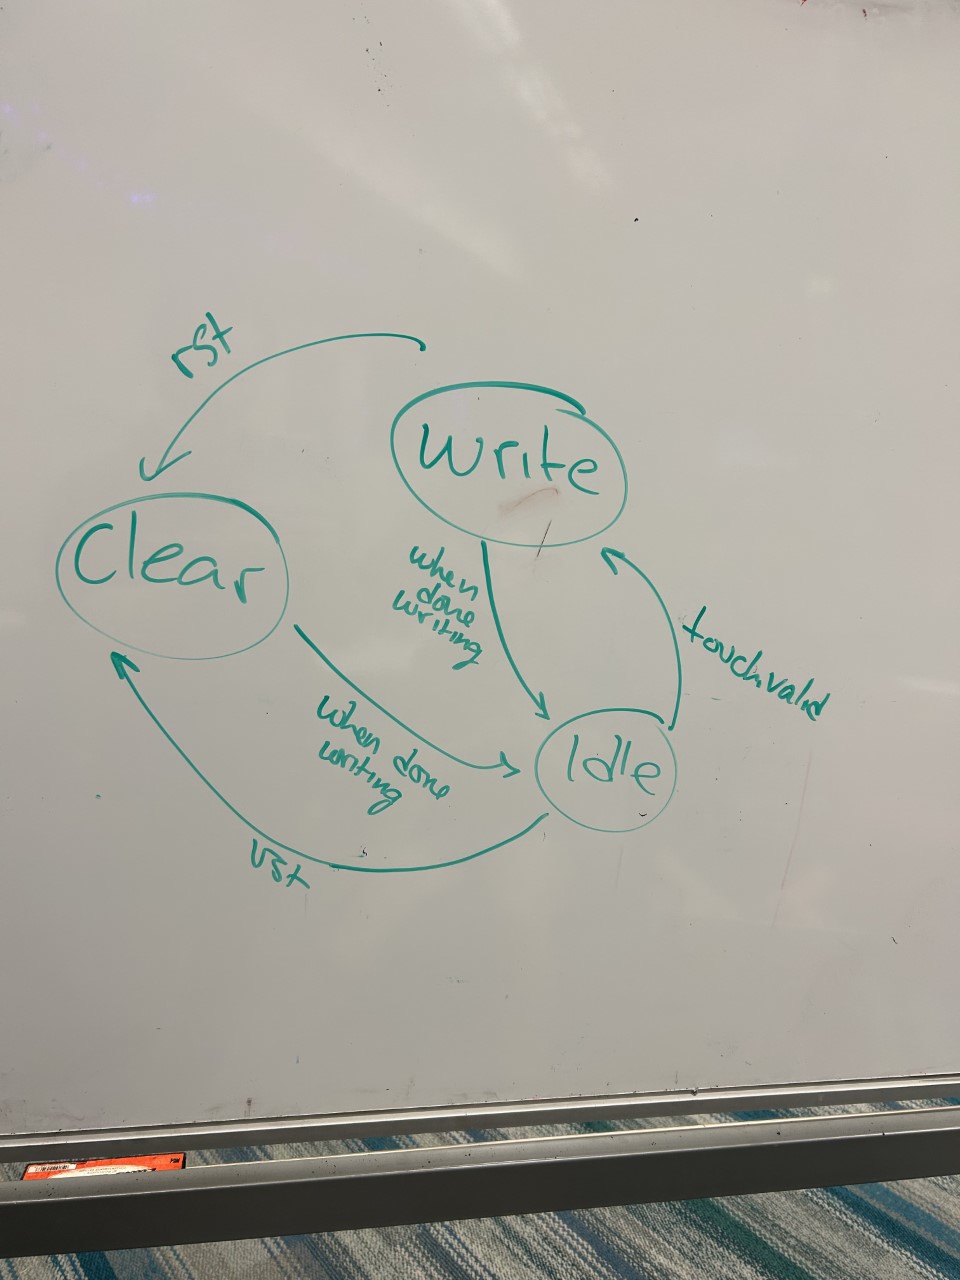 rst
Write
Clear
when
done
writing
touch.valid
Idle
when done
writing
rst